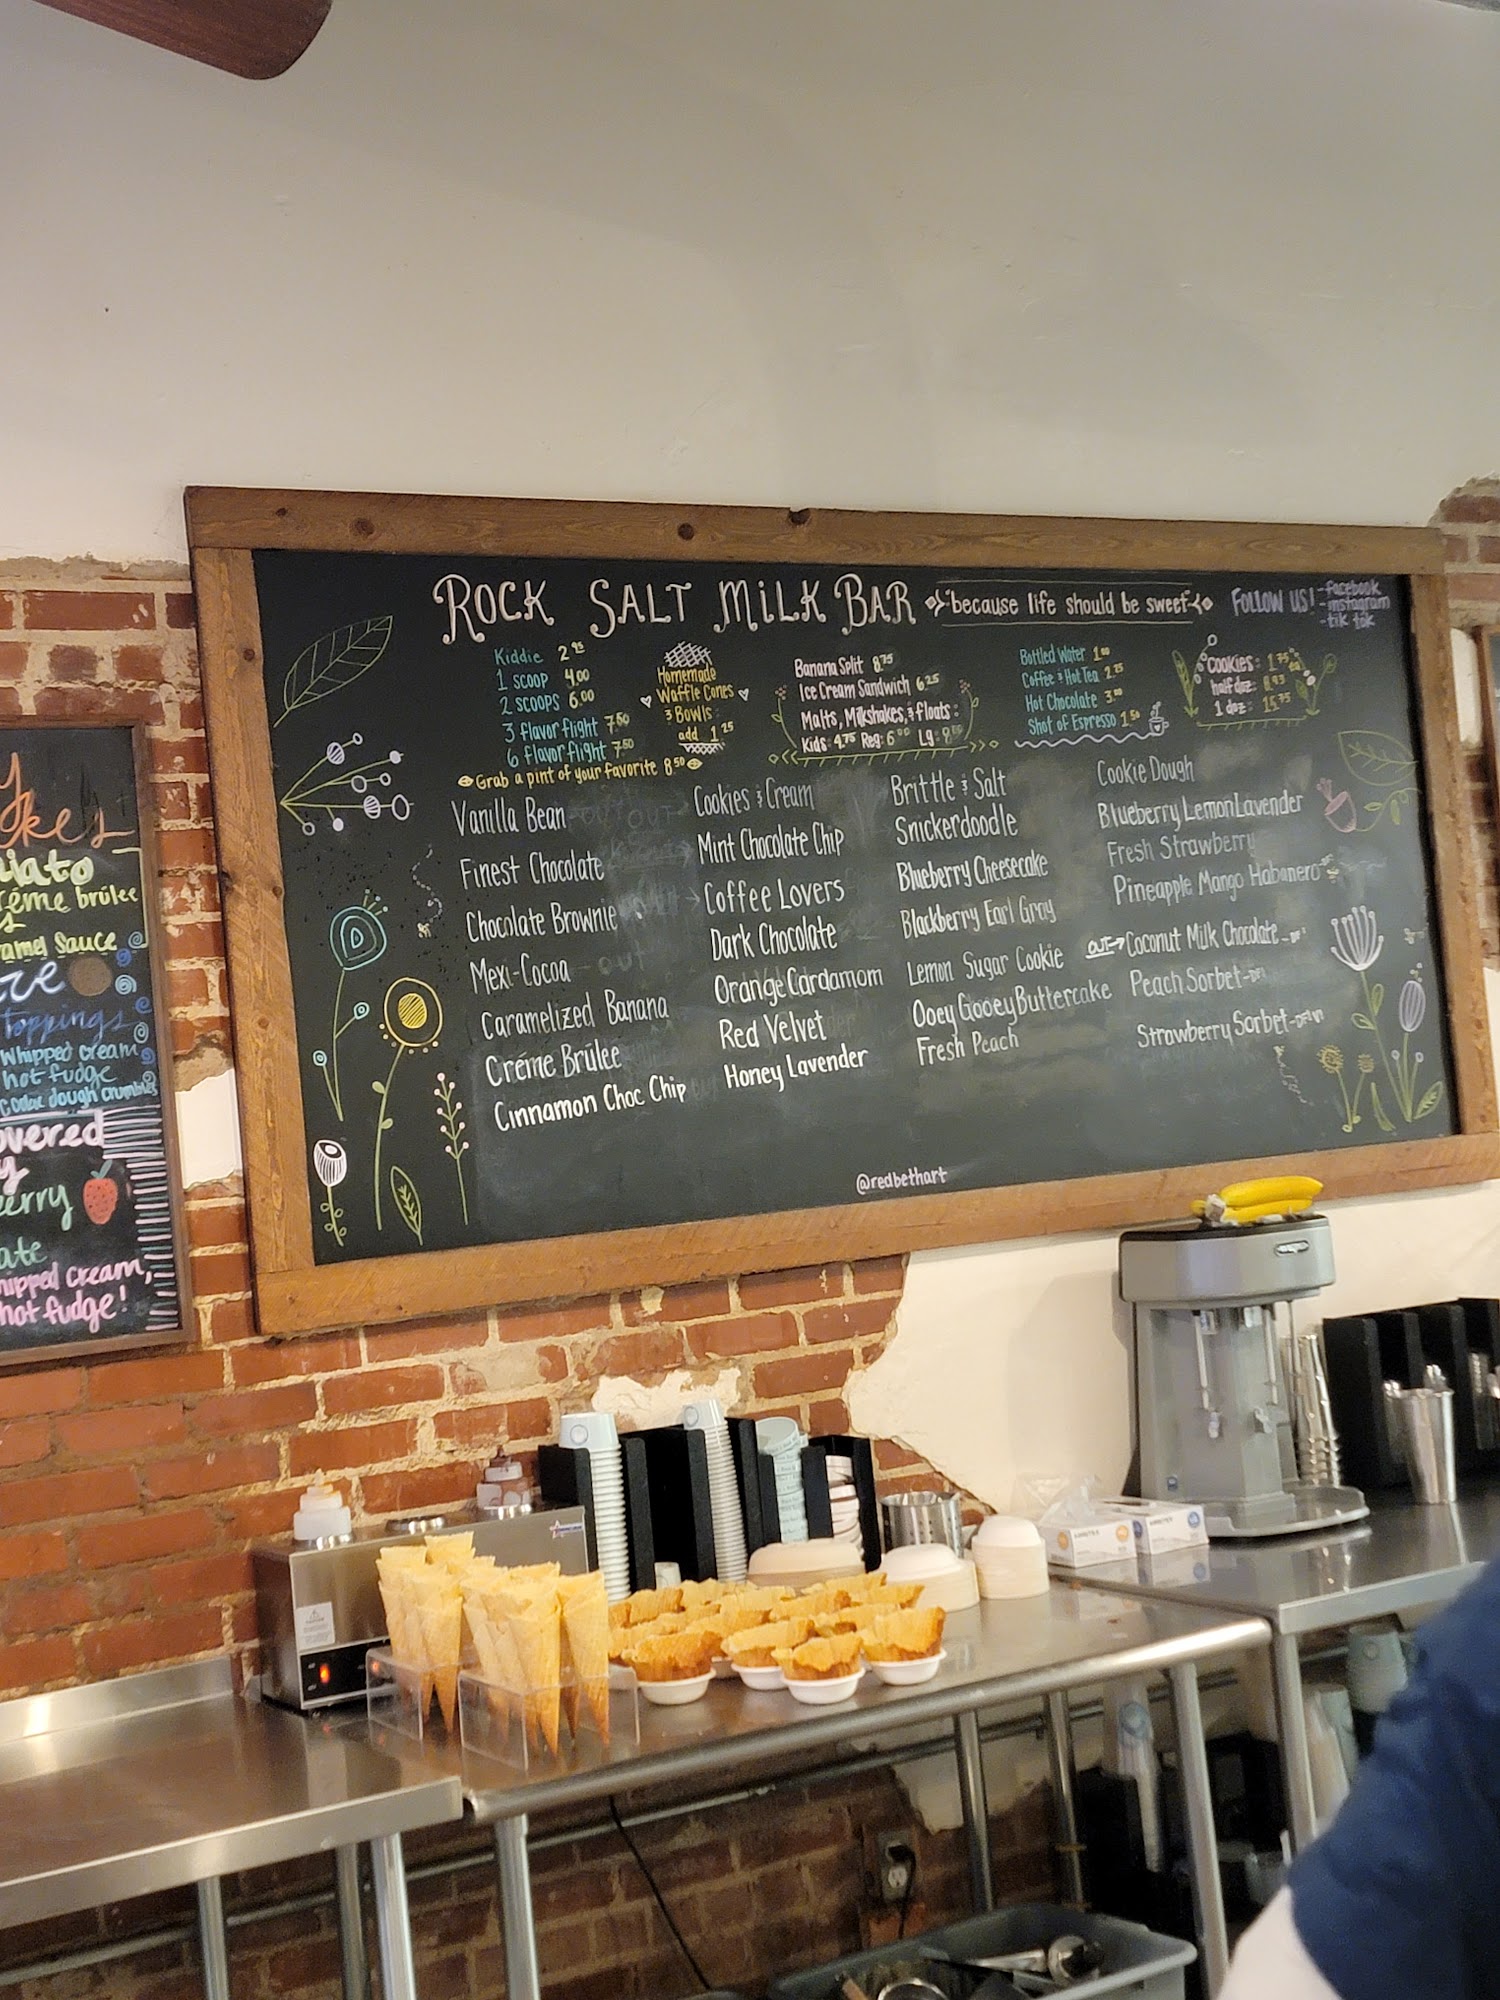 ROCK SALT MILK BAR
"because life should be sweet"
FOLLOW US!
- facebook
- instagram
- tik tok
Kiddie 2.95
1 scoop 4.00
2 scoops 6.00
3 flavor flight 7.50
6 flavor flight 7.50
Grab a pint of your favorite 8.50
Homemade
Waffle Cones
& Bowls:
add 1.25
Banana Split 8.75
Ice Cream Sandwich 6.25
Malts, Milkshakes, & floats:
Kids 4.75 Reg: 6.00 Lg:
Bottled Water 1.00
Coffee & Hot Tea 2.25
Hot Chocolate 3.00
Shot of Espresso 1.50
Cookies: 1.75
half doz:
1 doz: 15.75
Vanilla Bean
Finest Chocolate
Chocolate Brownie
Mexi-Cocoa
Caramelized Banana
Créme Brûlee
Cinnamon Choc Chip
Cookies & Cream
Mint Chocolate Chip
Coffee Lovers
Dark Chocolate
Orange Cardamom
Red Velvet
Honey Lavender
Brittle & Salt
Snickerdoodle
Blueberry Cheesecake
Blackberry Earl Gray
Lemon Sugar Cookie
Ooey Gooey Buttercake
Fresh Peach
Cookie Dough
Blueberry Lemon Lavender
Fresh Strawberry
Pineapple Mango Habanero
OUT→ Coconut Milk Chocolate
Peach Sorbet
Strawberry Sorbet
@redbethart
créme brûlée
Sauce
Toppings
Whipped cream
hot fudge
dough crumbles
overed
whipped cream,
hot fudge!